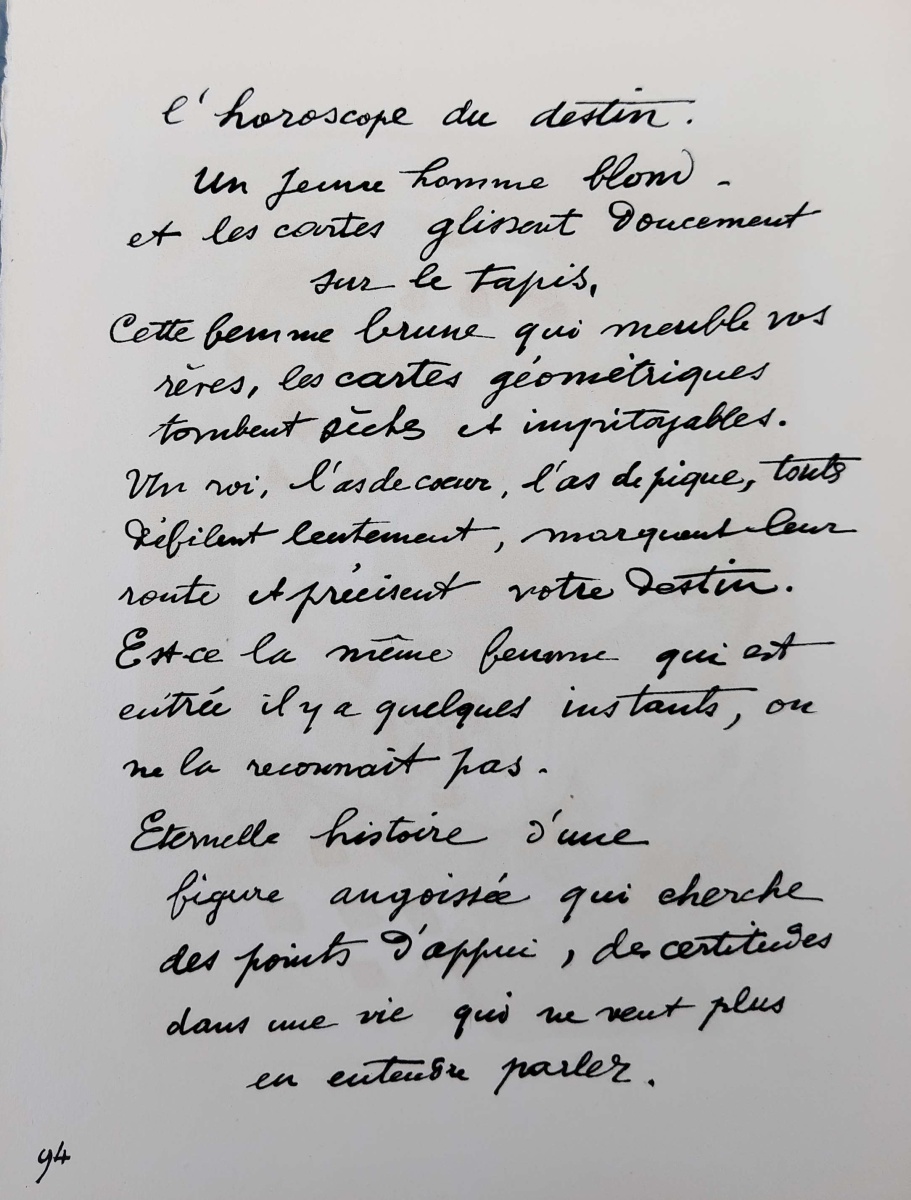 l'horoscope du destin.
Un jeune homme blond -
et les cartes glissent doucement
sur le tapis.
Cette femme brune qui meuble vos
rêves, les cartes géométriques
tombent sèches et impitoyables.
Un roi, l'as de coeur, l'as de pique, touts
défilent lentement, marquent leur
route et précisent votre destin.
Est-ce la même femme qui est
entrée il y a quelques instants, on
ne la reconnait pas.
Eternelle histoire d'une
figure angoissée qui cherche
des points d'appui, des certitudes
dans une vie qui ne veut plus
en entendre parler.
94